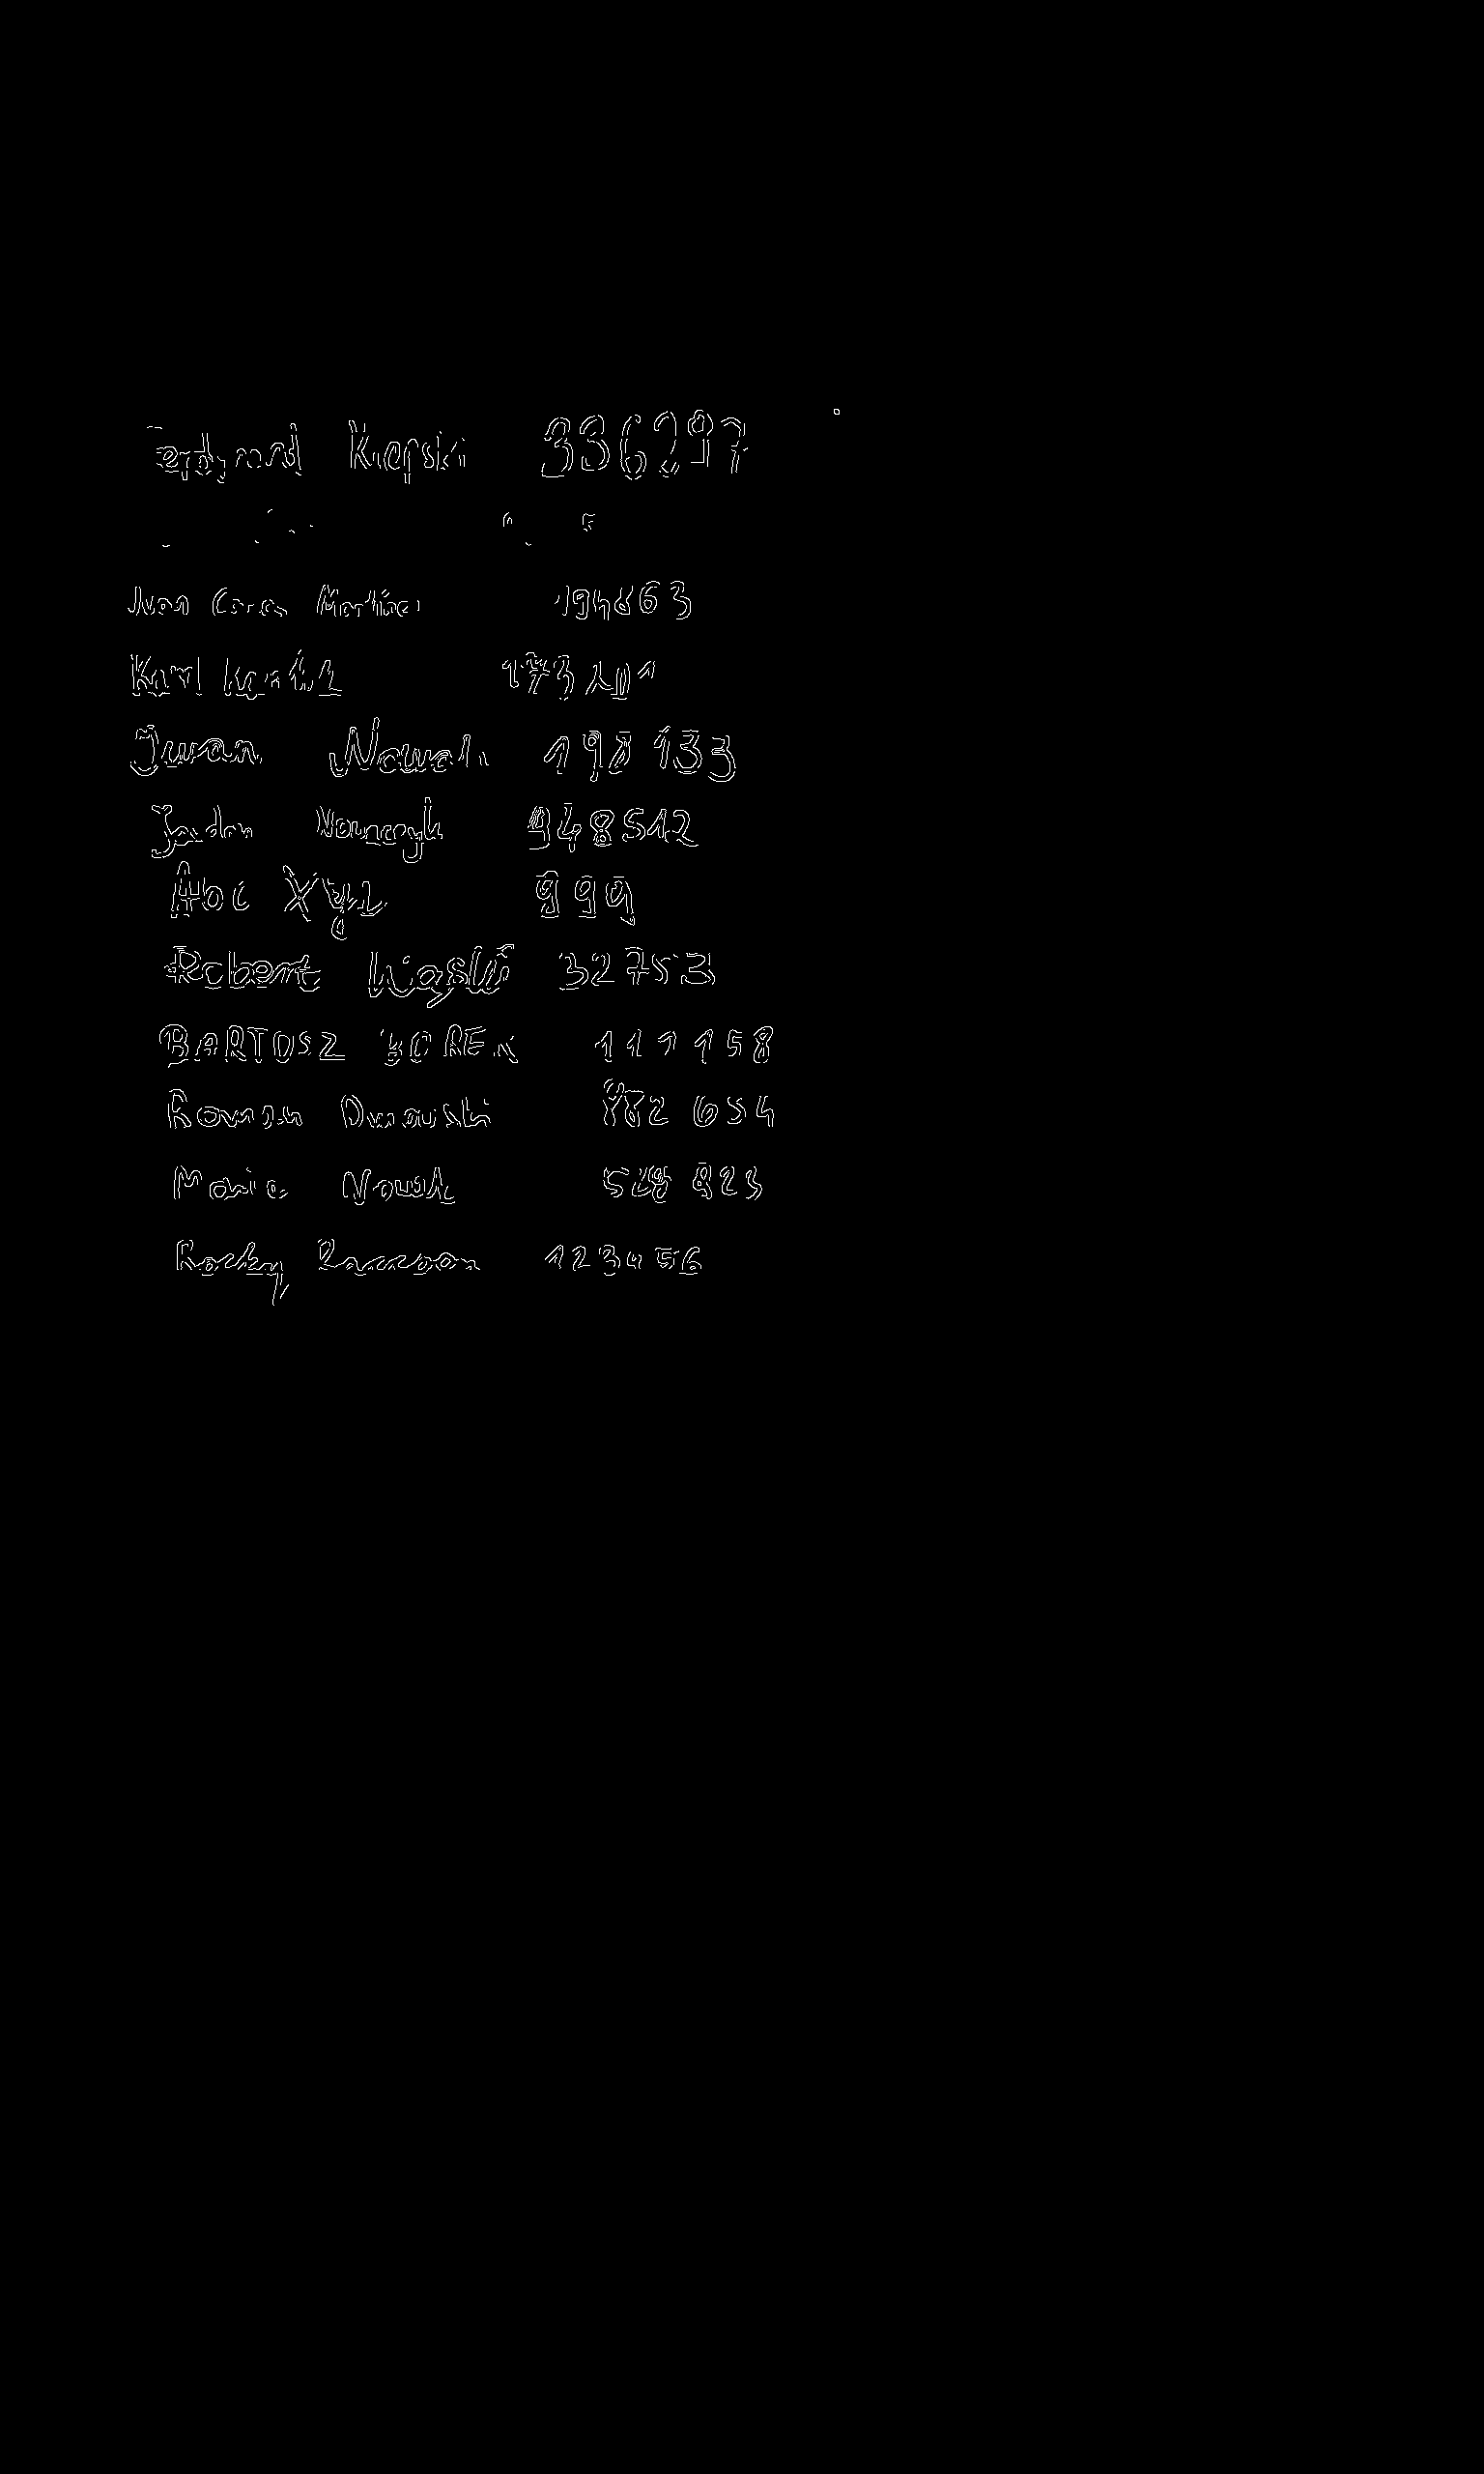 Ferdynand Kiepski 336297
Juan Carlos Martinez 194863
Karl 173201
Iwan Nowak 198133
Jordan Nowaczyk 948512
Abc Xyz 999
Robert 32753
BARTOSZ BOREK 111158
Roman Dmowski 882654
Maria Nowak 528923
Rocky Raccoon 123456